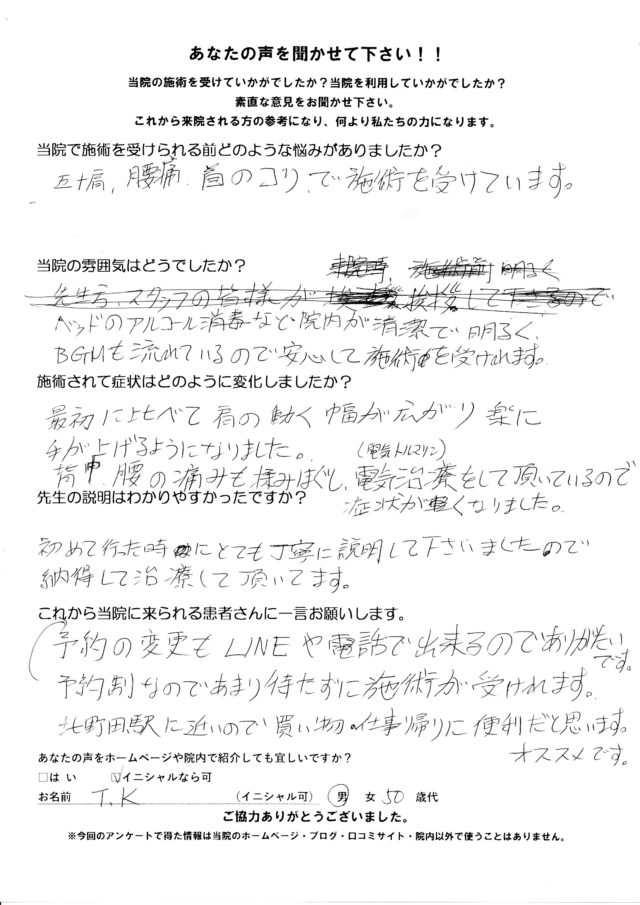 あなたの声を聞かせて下さい！！
当院の施術を受けていかがでしたか？当院を利用していかがでしたか？
素直な意見をお聞かせ下さい。
これから来院される方の参考になり、何より私たちの力になります。
当院で施術を受けられる前どのような悩みがありましたか？
五十肩、腰痛、首のコリ、で施術を受けています。
当院の雰囲気はどうでしたか？
明るく
先生方、スタッフの皆様が 挨拶して下さるので
ベッドのアルコール消毒など院内が清潔で明るく、
BGMも流れているので安心して施術を受けれます。
施術されて症状はどのように変化しましたか？
最初に比べて肩の動く幅が広がり楽に
手が上げるようになりました。
（電気トルマリン）
背中、腰の痛みも揉みほぐし、電気治療をして頂いているので
症状が軽くなりました。
先生の説明はわかりやすかったですか？
初めて行った時にとても丁寧に説明して下さいましたので
納得して治療して頂いてます。
これから当院に来られる患者さんに一言お願いします。
予約の変更もLINEや電話で出来るのでありがたい
です。
予約制なのであまり待たずに施術が受けれます。
北野田駅に近いので買い物・仕事帰りに便利だと思います。
オススメです。
あなたの声をホームページや院内で紹介しても宜しいですか？
□はい ☑イニシャルなら可
お名前 T.K （イニシャル可） 男 女 50 歳代
ご協力ありがとうございました。
※今回のアンケートで得た情報は当院のホームページ・ブログ・口コミサイト・院内以外で使うことはありません。